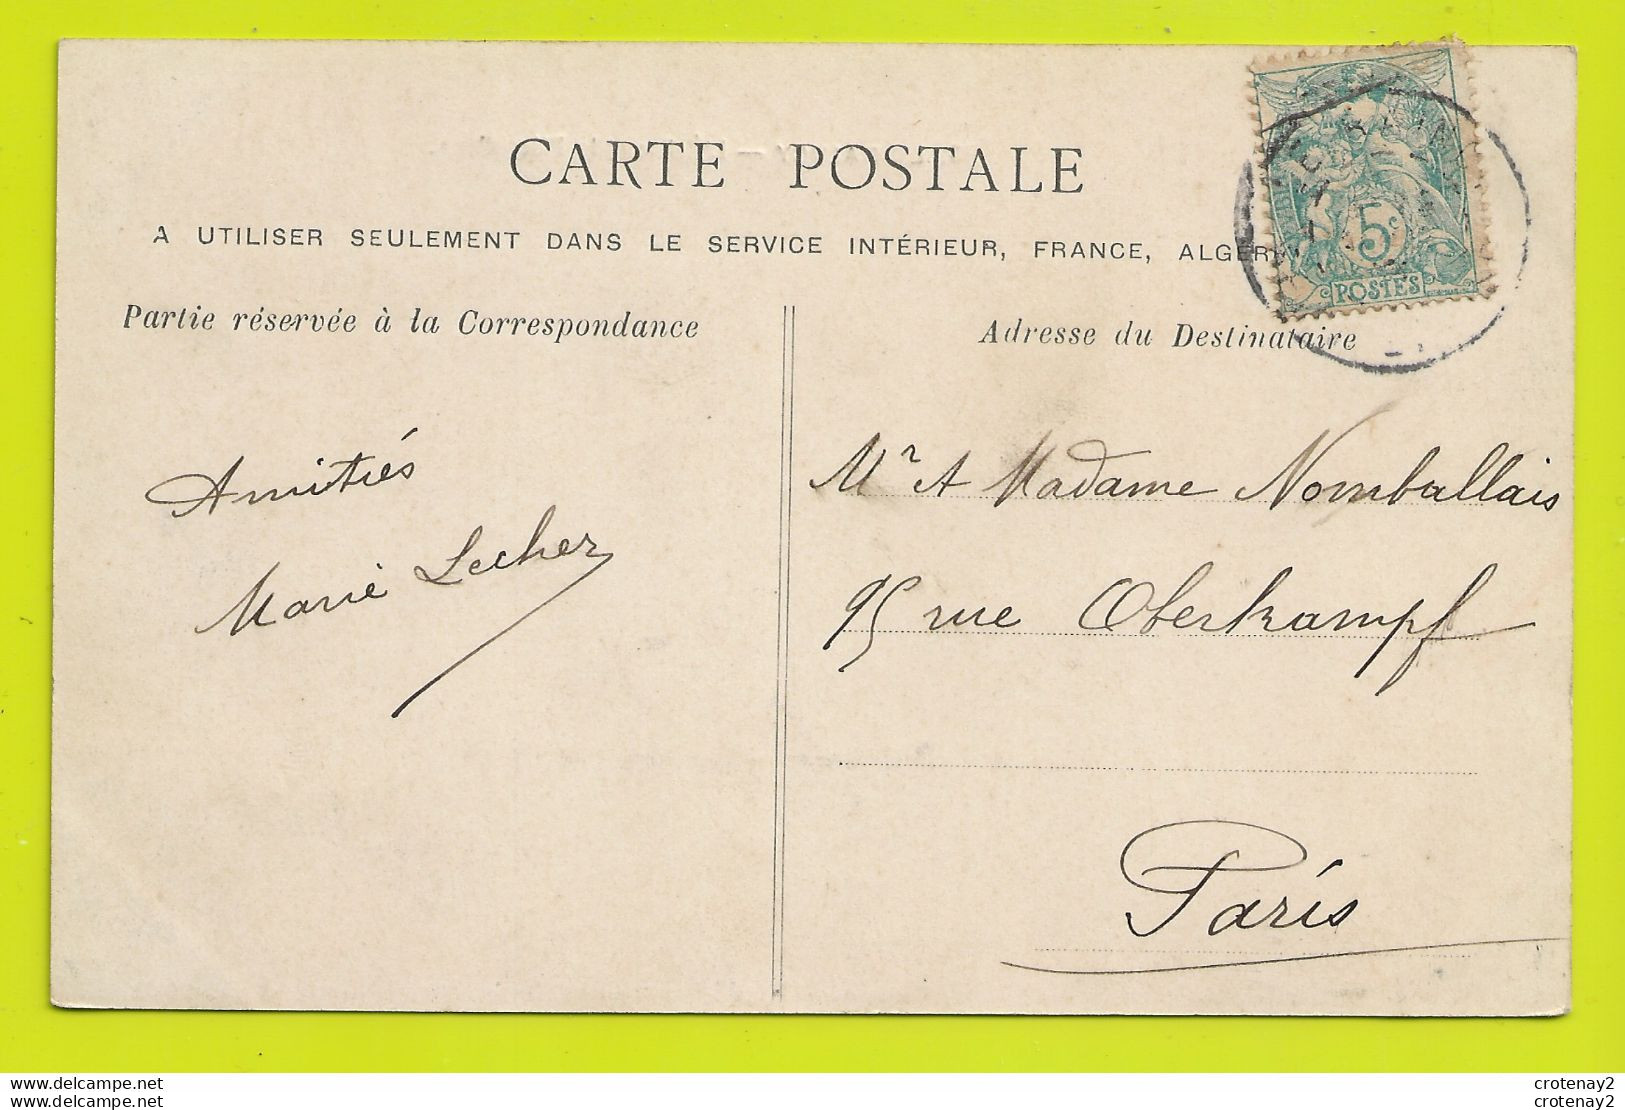 CARTE POSTALE
A UTILISER SEULEMENT DANS LE SERVICE INTÉRIEUR, FRANCE, ALGÉR
Partie réservée à la Correspondance
Adresse du Destinataire
5c
POSTES
Amitiés
Marie Lecher
Mr et Madame Nomballais
95 rue Oberkampf
Paris
www.delcampe.net
www.delcampe.net
crotenay2
crotenay2